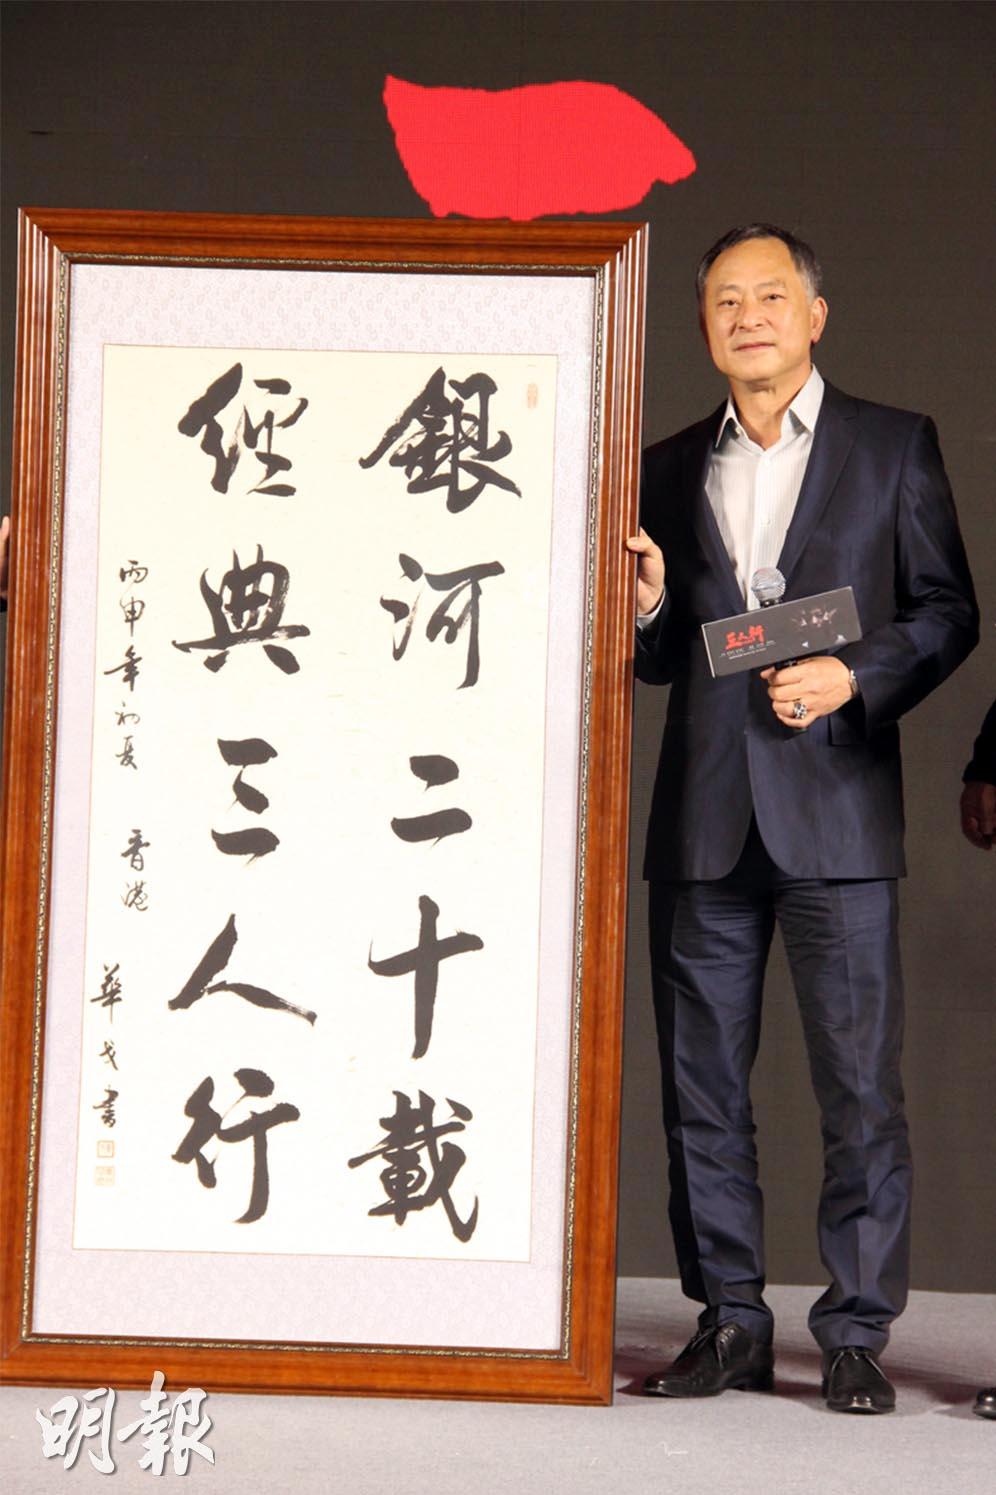 銀河二十載
經典三人行
丙申年初夏 香港 華戈書
三人行
明報